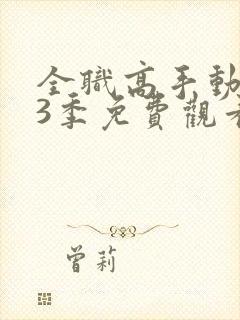 全職高手動
3季免費觀看
曾莉